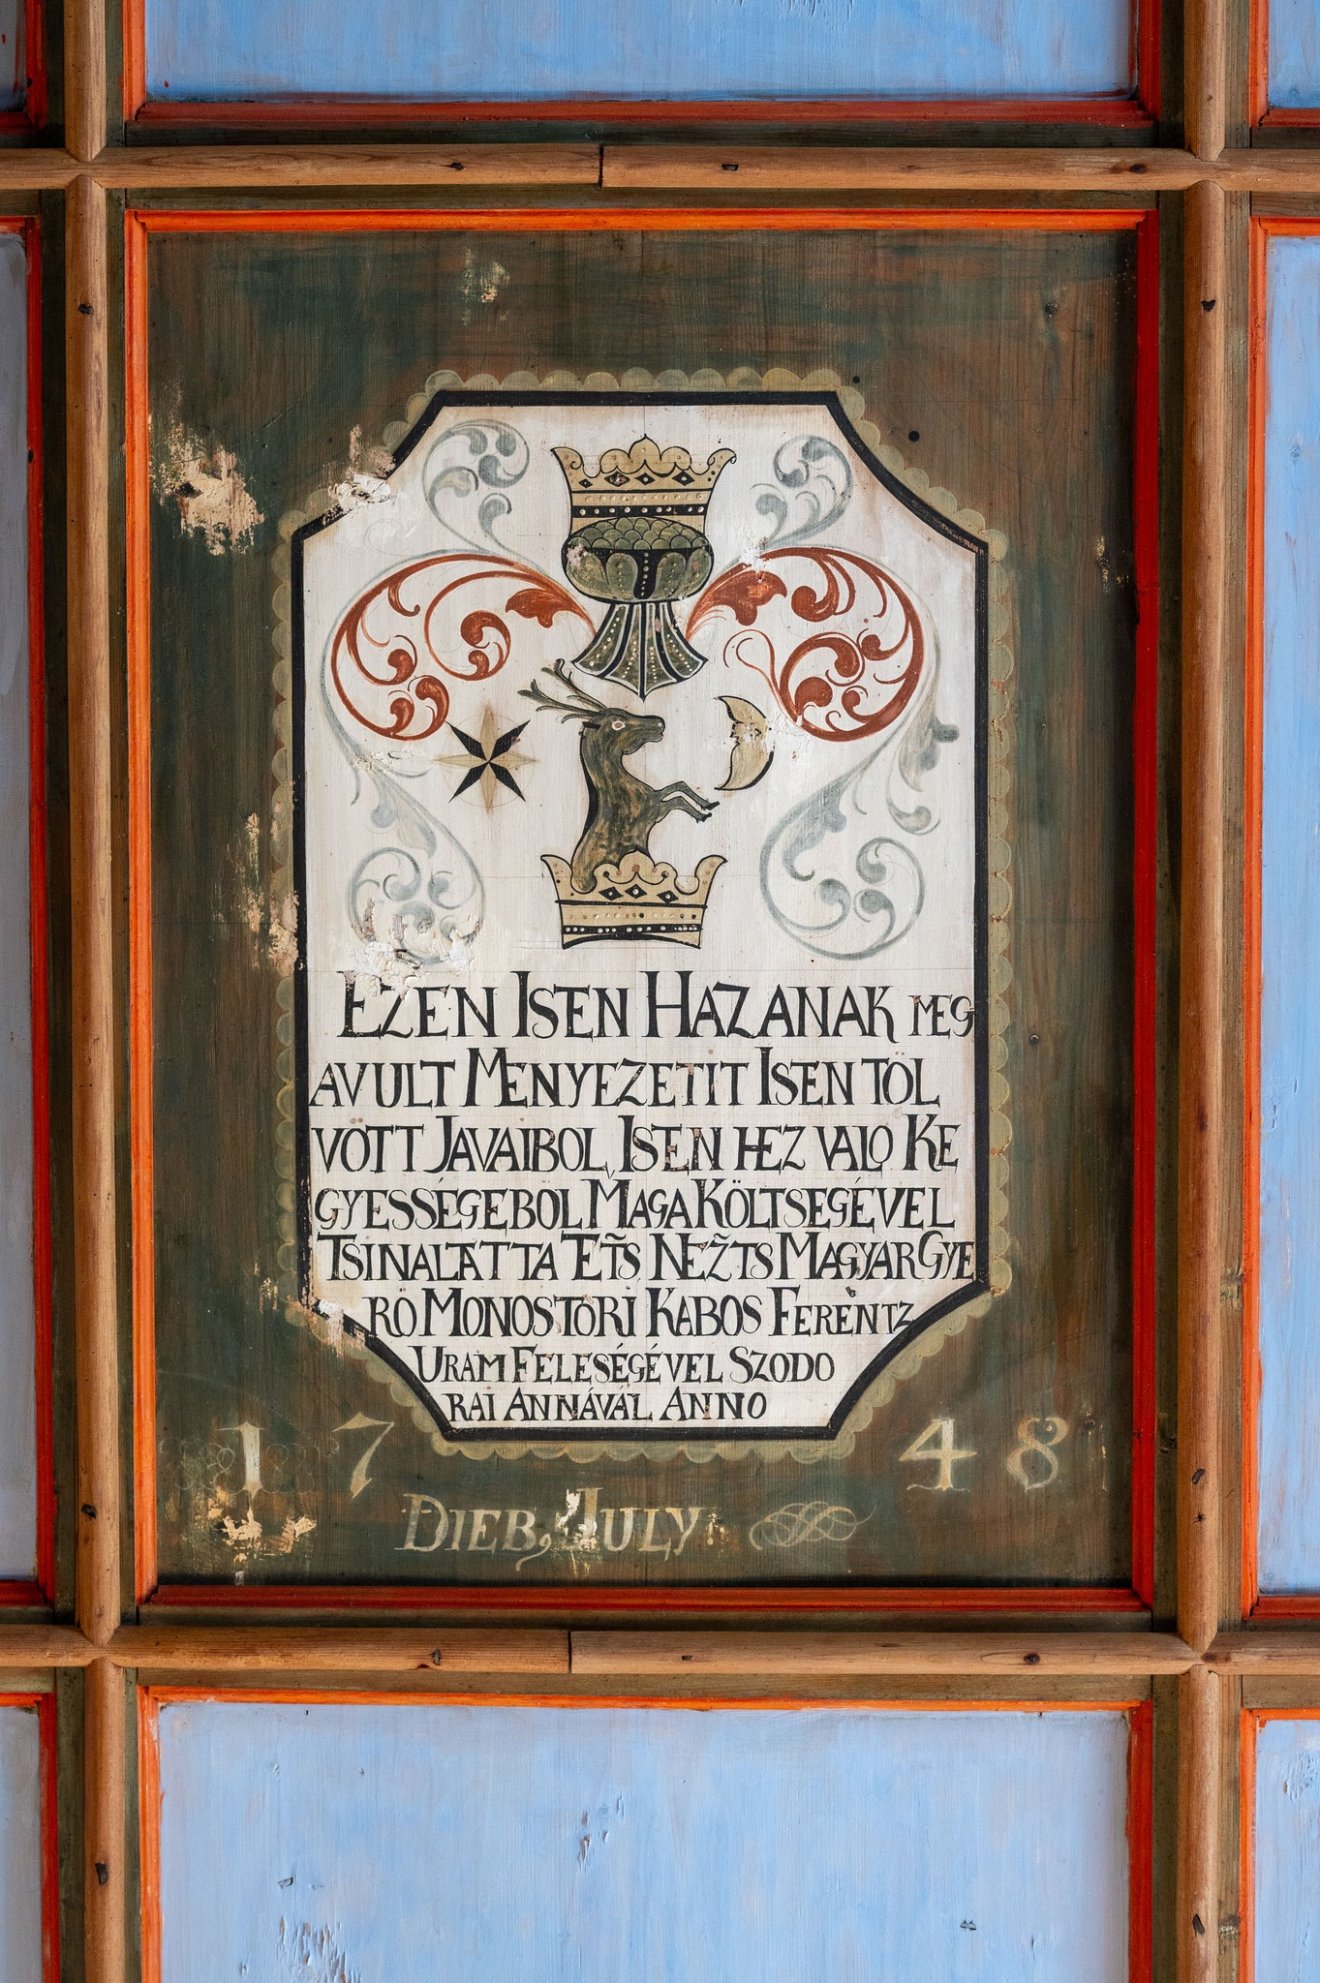 EZEN ISEN HAZANAK MEG
AVULT MENYEZETIT ISEN TÖL
VÖTT JAVAIBOL, ISEN HEZ VALO KE
GYESSÉGEBÖL MAGA KÖLTSEGÉVEL
TSINALTATTA ET̃S NEZ̃TS MAGYAR GYE
RÖ MONOSTORI KABOS FERENTZ
URAM FELESÉGÉVEL SZODO
RAI ANNÁVÁL ANNO
17 48
DIEB, JULY